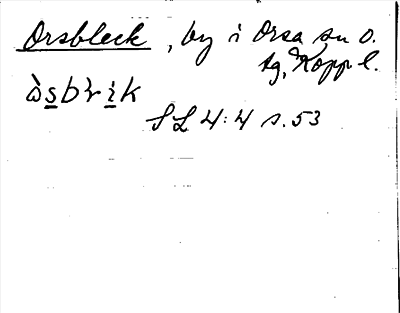 Orsbleck, by i Orsa sn o.
tg, Kopp l.
SL 4:4 s. 53